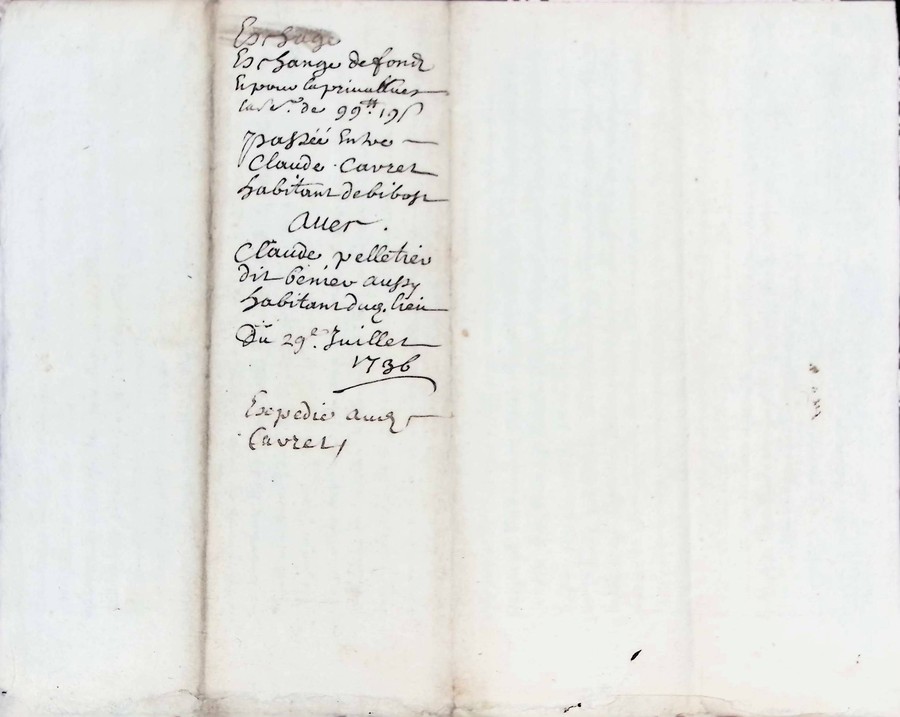 Eschage
Eschange de fond
Et pour la prinallues
de 99tt 19s
passéé Entre
Claude Cavret
habitant de bibost
Auec
Claude pelletier
dit benier aussy
habitant dud. lieu
Du 29e Juillet
1736
Expedie aud
Cavret